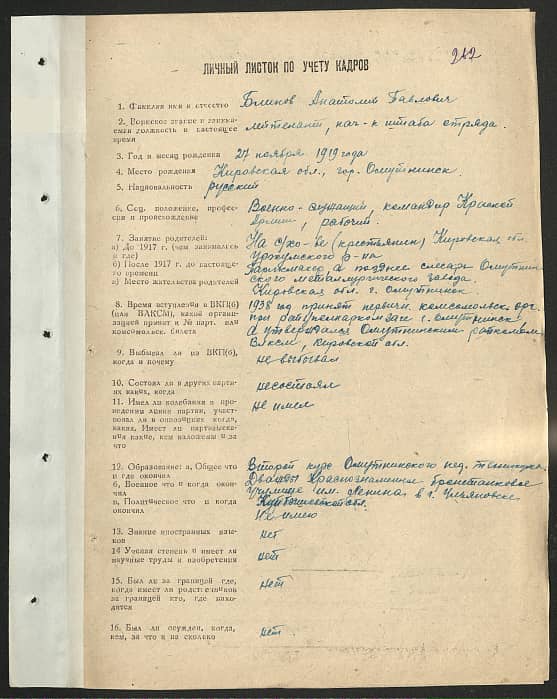 247
ЛИЧНЫЙ ЛИСТОК ПО УЧЕТУ КАДРОВ
1. Фамилия имя и отчество Блинов Анатолий Павлович
2. Воинское звание и занимаемая должность в настоящее время лейтенант, нач-к штаба отряда.
3. Год и месяц рождения 27 ноября 1919 года
4. Место рождения Кировская обл., гор. Омутнинск.
5. Национальность русский
6. Соц. положение, профессия и происхождение Военно-служащий, командир Красной
Армии, рабочий.
7. Занятие родителей: На с/хо-ве (крестьянин) Кировская обл.
а) До 1917 г. (чем занимались и где) Уржумского р-на
б) После 1917 г. до настоящего времени а позднее слесарь Омутнинского металлургического завода
в) Место жительства родителей Кировская обл. г. Омутнинск.
8. Время вступления в ВКП(б) (или ВЛКСМ), какой организацией принят и № парт. или комсомольск. билета 1938 год принят первичн. комсомольск. орг.
при г. Омутнинск
а утверждался Омутнинским райкомом
ВЛКСМ, Кировской обл.
9. Выбывал ли из ВКП(б), когда и почему не выбывал
10. Состоял ли в других партиях каких, когда несостоял
11. Имел ли колебания в проведении линии партии, участвовал ли в оппозициях когда, каких, Имеет ли партвзыскания какие, кем наложены и за что не имел
12. Образование: а, Общее что и где окончил Второй курс Омутнинского пед. техникума.
б, Военное что и когда окончил Дважды Краснознаменное бронетанковое
училище им. Ленина в г. Ульяновске
в, Политическое что и когда окончил Куйбышевской обл.
Не имею
13. Знание иностранных языков нет
14 Ученая степень и имеет ли научные труды и изобретения нет
15. Был ли за границей где, когда имеет ли родственников за границей кто, где находятся нет
16. Был ли осужден, когда, кем, за что и на сколько нет.